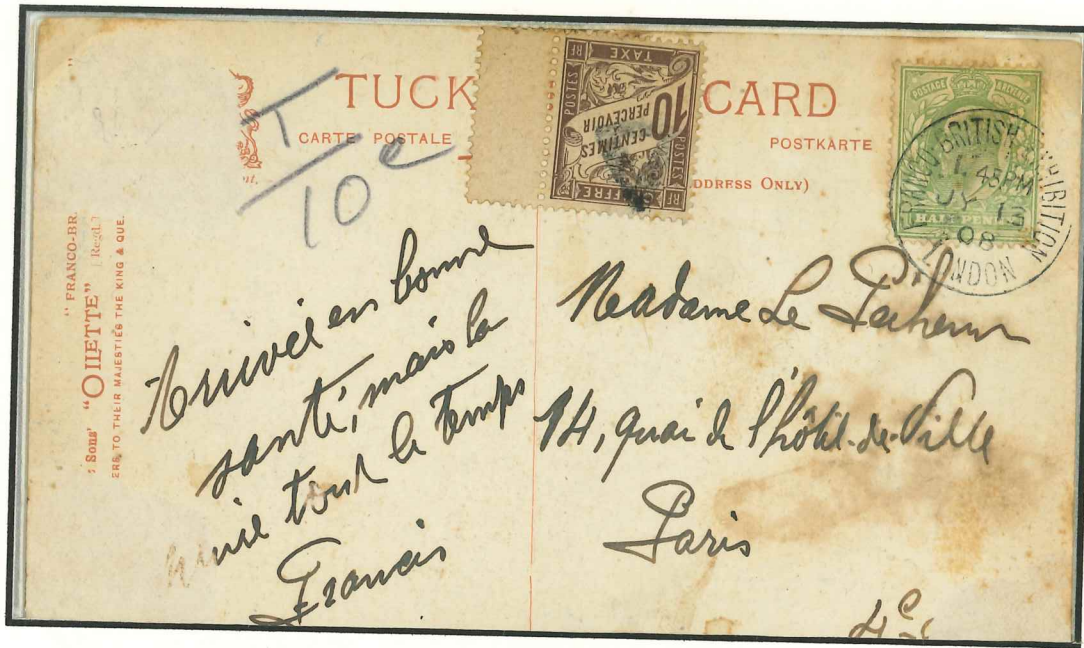 TUCK CARD
CARTE POSTALE POSTKARTE
ADDRESS ONLY)
T
10 c
POSTES
RF TAXE RF
10
CENTIMES
PERCEVOIR
POSTAGE
HALF PENNY
FRANCO BRITISH EXHIBITION
45 PM
JY 13
08
LONDON
" FRANCO-BR
Sons' "OILETTE" Regd.
ERS TO THEIR MAJESTIES THE KING & QUE
Arrivé en bonne
santé, mais la
pluie tout le temps
Francis
Madame Le
14, quai de l'hôtel-de-Ville
Paris
4e